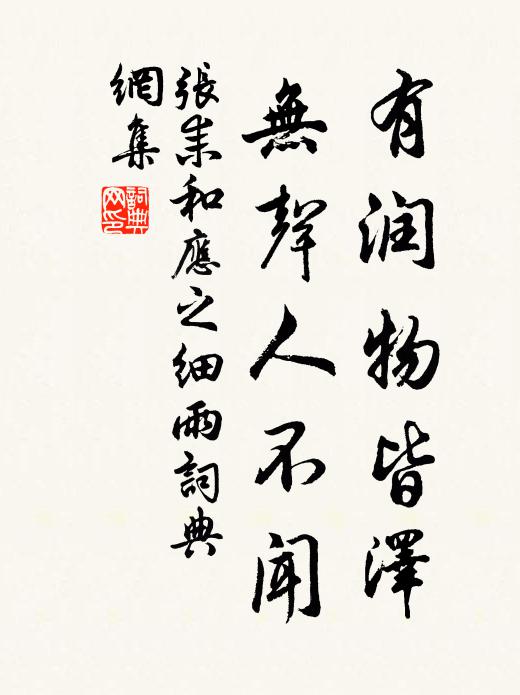 有润物皆澤
無聲人不聞
張耒和應之細雨詞典
網集
詞典網印